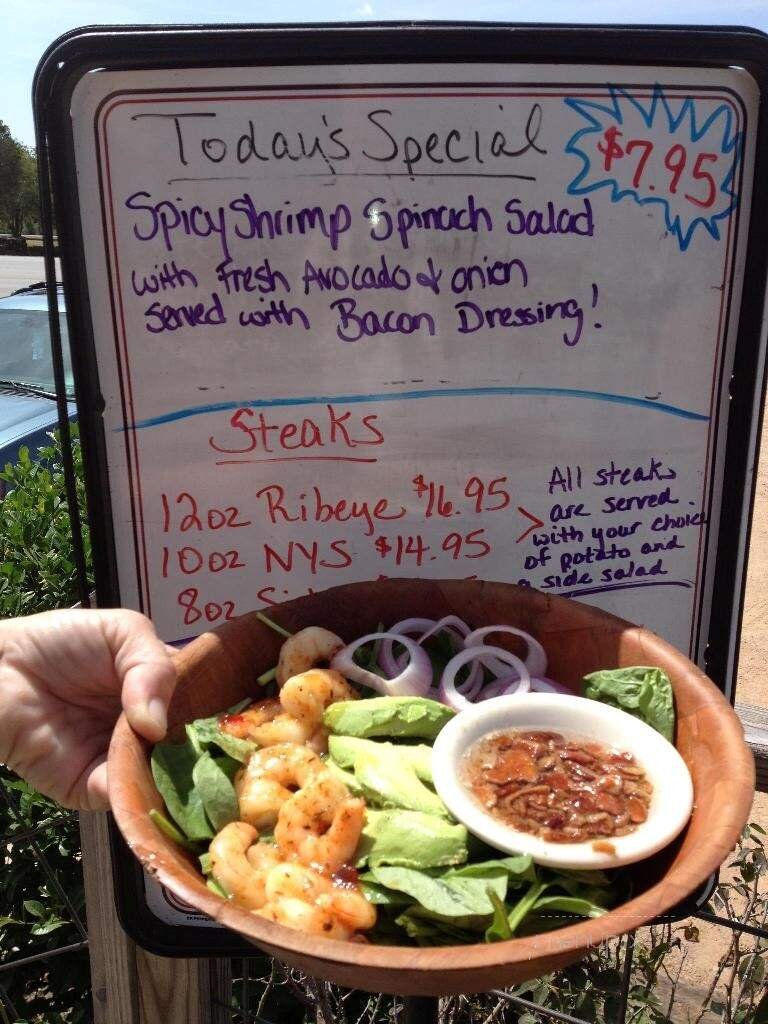 Today's Special
$7.95
Spicy Shrimp Spinach Salad
with Fresh Avocado & onion
Served with Bacon Dressing!
Steaks
12oz Ribeye $16.95
10oz NYS $14.95
8oz
All steaks
are served
with your choice
of potato and
a side salad